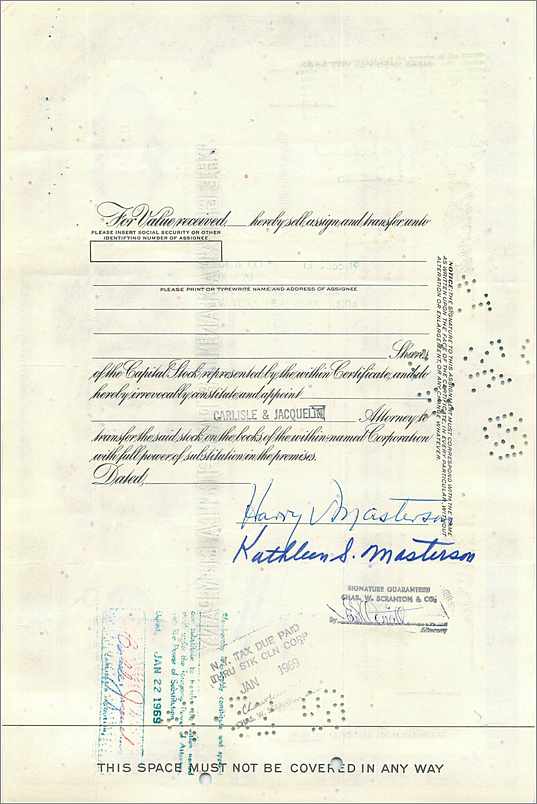 For Value received, hereby sell, assign and transfer unto
PLEASE INSERT SOCIAL SECURITY OR OTHER
IDENTIFYING NUMBER OF ASSIGNEE
PLEASE PRINT OR TYPEWRITE NAME AND ADDRESS OF ASSIGNEE
Shares
of the Capital Stock represented by the within Certificate, and do
hereby irrevocably constitute and appoint
CARLISLE & JACQUELIN Attorney to
transfer the said stock on the books of the within-named Corporation
with full power of substitution in the premises.
Dated,
NOTICE: THE SIGNATURE TO THIS ASSIGNMENT MUST CORRESPOND WITH THE NAME
AS WRITTEN UPON THE FACE OF THE CERTIFICATE, IN EVERY PARTICULAR, WITHOUT
ALTERATION OR ENLARGEMENT, OR ANY CHANGE WHATEVER.
Harry Masterson
Kathleen S. Masterson
SIGNATURE GUARANTEED
CHAS. W. SCRANTON & CO.
By
N.Y. TAX DUE PAID
THRU STK CLN CORP
JAN 1969
CHAS. W.
JAN 22 1969
THIS SPACE MUST NOT BE COVERED IN ANY WAY